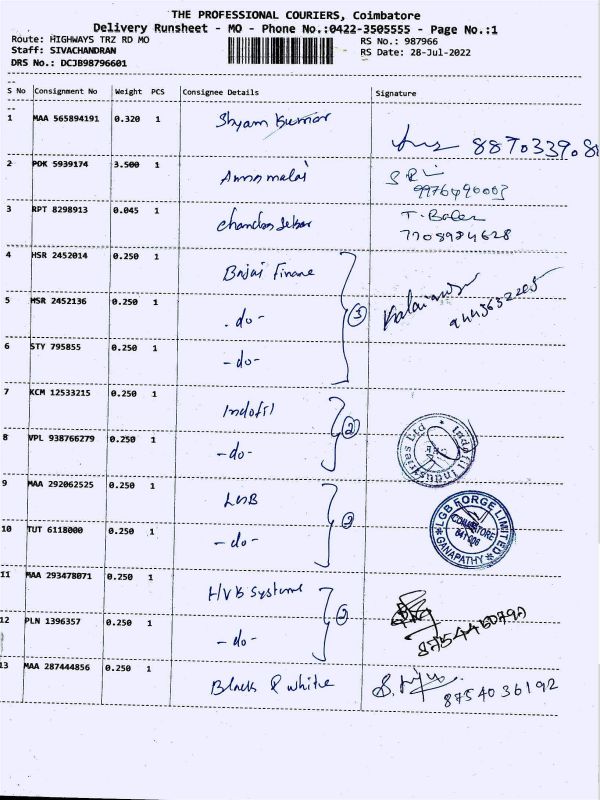 THE PROFESSIONAL COURIERS, Coimbatore
Delivery Runsheet - MO - Phone No.:0422-3505555 - Page No.:1
Route: HIGHWAYS TRZ RD MO RS No.: 987966
Staff: SIVACHANDRAN RS Date: 28-Jul-2022
DRS No.: DCJB98796601
S No Consignment No Weight PCS Consignee Details Signature
1 MAA 565894191 0.320 1 Shyam Kumar
2 POK 5939174 3.500 1 Annamalai
9976490003
3 RPT 8298913 0.045 1 T. Balen
7708984628
4 HSR 2452014 0.250 1 Bajai Finane
5 HSR 2452136 0.250 1 -do- 3
6 STY 795855 0.250 1 -do-
7 KCM 12533215 0.250 1 Indofil 2
8 VPL 938766279 0.250 1 -do-
9 MAA 292062525 0.250 1 LGB 2
LGB FORGE LIMITED
COIMBATORE
641 006
GANAPATHY
10 TUT 6118000 0.250 1 -do-
11 MAA 293478071 0.250 1 HVB Systems
12 PLN 1396357 0.250 1 -do-
13 MAA 287444856 0.250 1 Black & white
8754036192